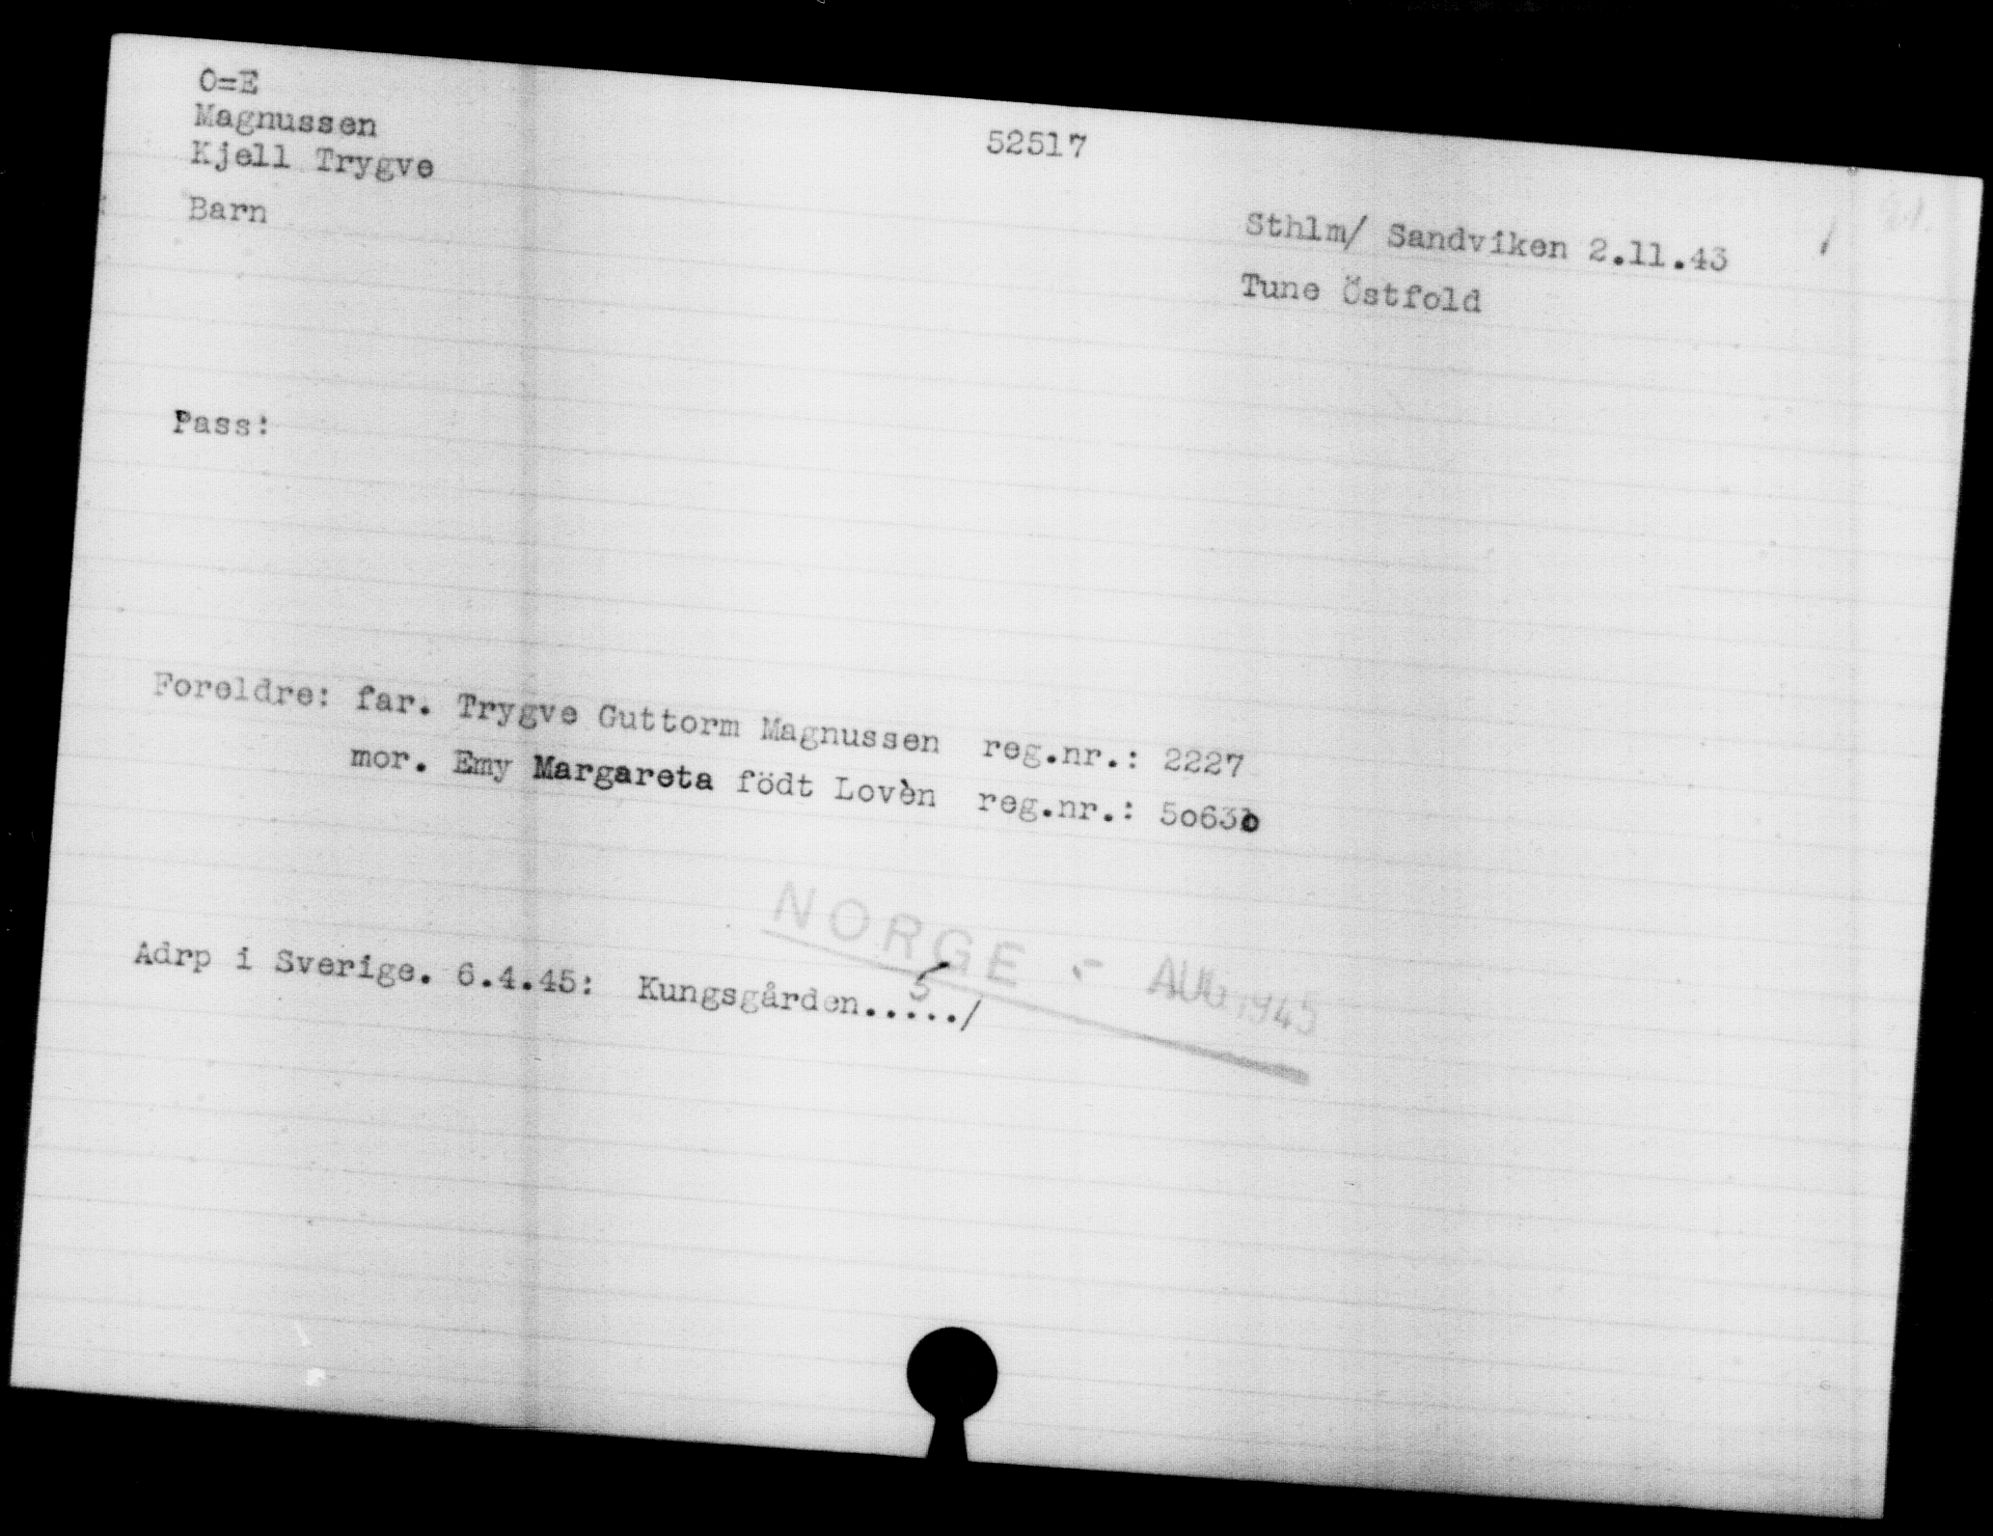 O=E
Magnussen
Kjell Trygve
52517
Barn
Sthlm/ Sandviken 2.11.43
Tune Östfold
Pass:
Foreldre: far. Trygve Guttorm Magnussen reg.nr.: 2227
mor. Emy Margareta födt Lovèn reg.nr.: 5o63
NORGE - AUG 1945
5
Adrp i Sverige. 6.4.45: Kungsgården...../